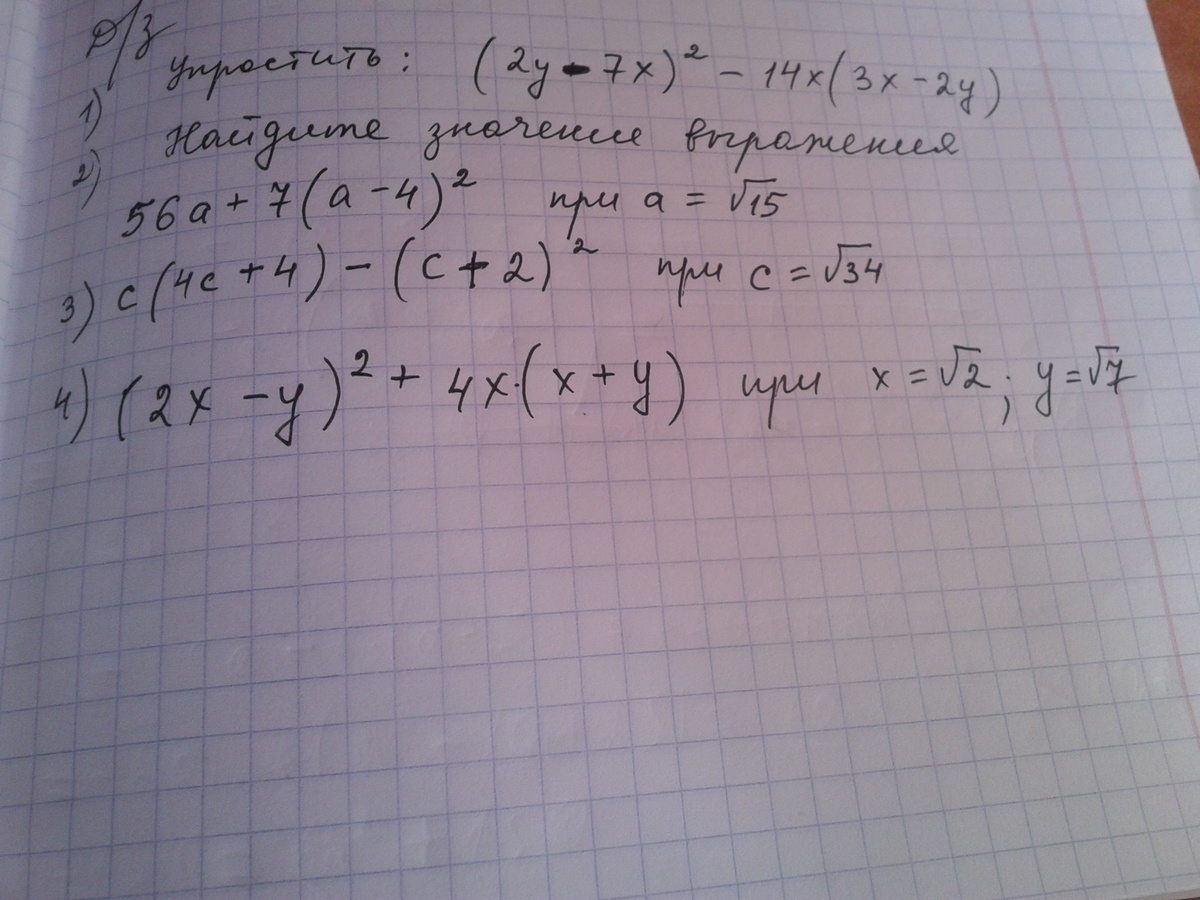 Д/з
1) Упростить: (2y - 7x)² - 14x(3x - 2y)
2) Найдите значение выражения
56a + 7(a - 4)² при a = √15
3) c(4c + 4) - (c + 2)² при c = √34
4) (2x - y)² + 4x·(x + y) при x = √2; y = √7